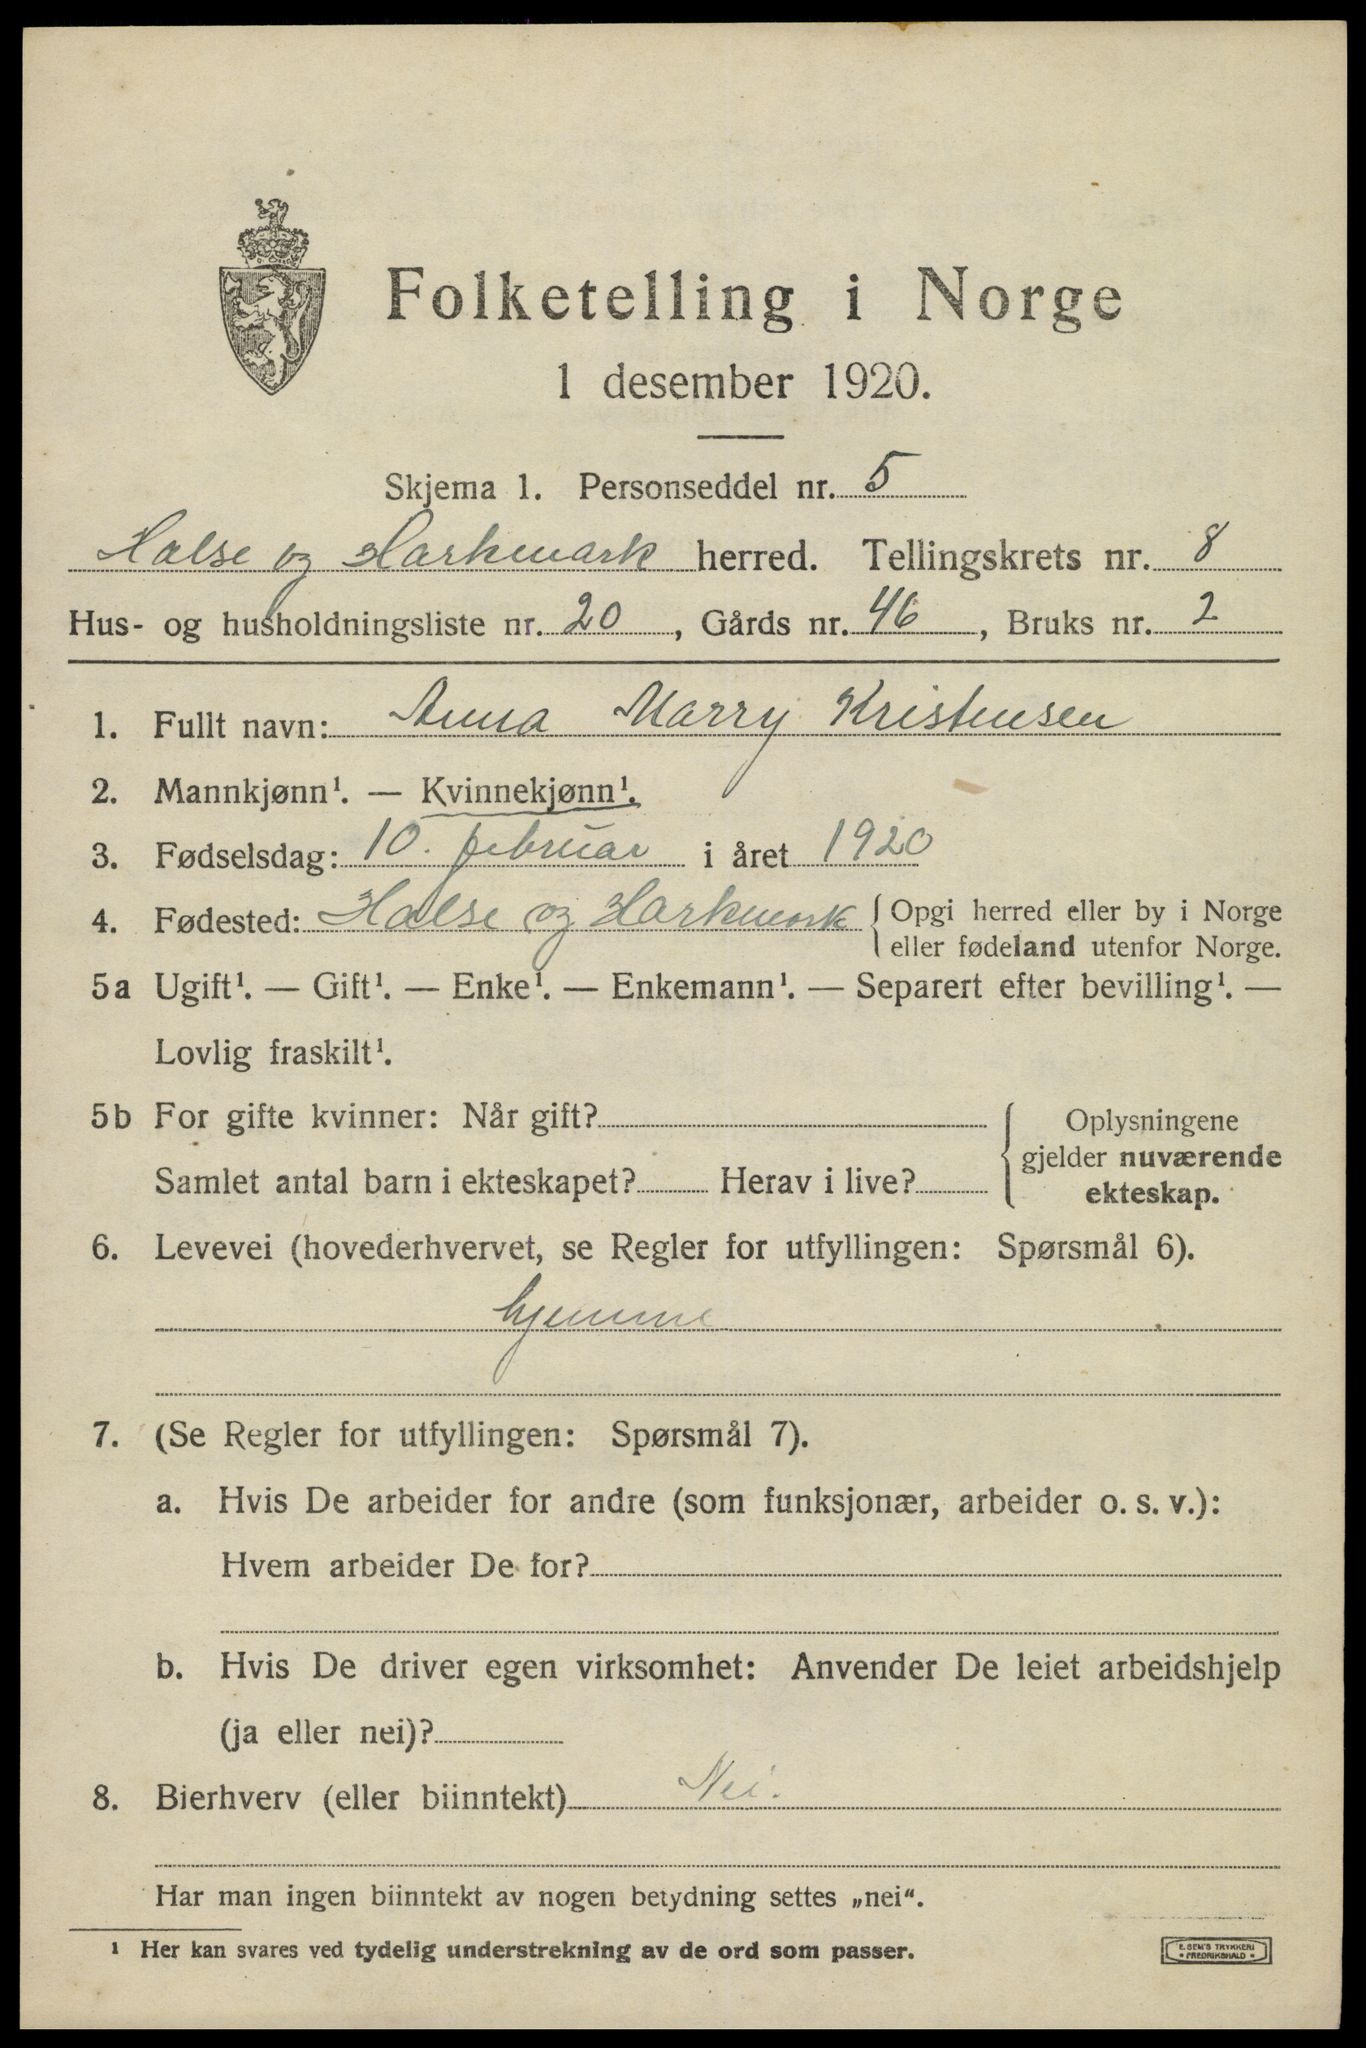 Folketelling i Norge
1 desember 1920.
Skjema 1. Personseddel nr. 5
Halse og Harkmark herred. Tellingskrets nr. 8
Hus- og husholdningsliste nr. 20, Gårds nr. 46, Bruks nr. 2
1. Fullt navn: Anna Marry Kristensen
2. Mannkjønn¹. — Kvinnekjønn¹.
3. Fødselsdag: 10. februar i året 1920
4. Fødested: Halse og Harkmark { Opgi herred eller by i Norge
eller fødeland utenfor Norge.
5a Ugift¹. — Gift¹. — Enke¹. — Enkemann¹. — Separert efter bevilling¹. —
Lovlig fraskilt¹.
5b For gifte kvinner: Når gift? { Oplysningene
gjelder nuværende
Samlet antal barn i ekteskapet? Herav i live? ekteskap.
6. Levevei (hovederhvervet, se Regler for utfyllingen: Spørsmål 6).
hjemme
7. (Se Regler for utfyllingen: Spørsmål 7).
a. Hvis De arbeider for andre (som funksjonær, arbeider o. s. v.):
Hvem arbeider De for?
b. Hvis De driver egen virksomhet: Anvender De leiet arbeidshjelp
(ja eller nei)?
8. Bierhverv (eller biinntekt) Nei.
Har man ingen biinntekt av nogen betydning settes „nei“.
¹ Her kan svares ved tydelig understrekning av de ord som passer.
E. SEM'S TRYKKERI
* FREDRIKSHALD *